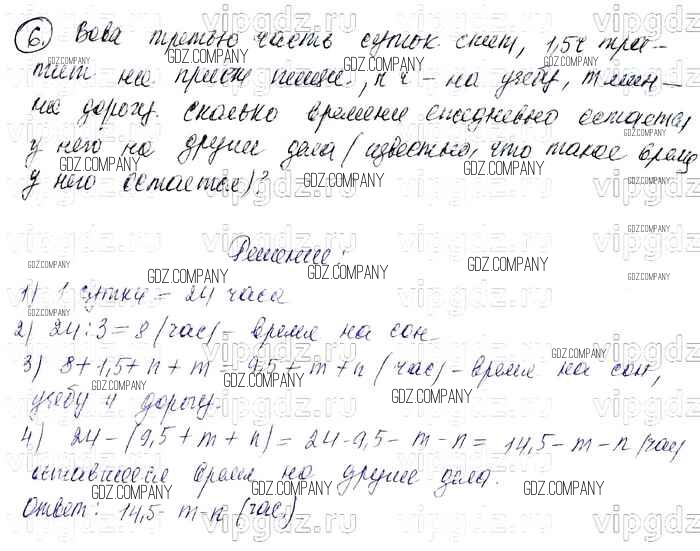 6. Вова третью часть суток спит, 1,5ч тра-
тит на прием пищи, n ч - на учебу, m мин -
на дорогу. Сколько времени ежедневно остается
у него на другие дела (известно, что такое время
у него остается)?
Решение:
1) 1 сутки = 24 часа
2) 24:3=8 (час) - время на сон.
3) 8+1,5+n+m=9,5+m+n (час) - время на сон,
учебу и дорогу.
4) 24-(9,5+m+n)=24-9,5-m-n=14,5-m-n (час)
оставшееся время на другие дела.
Ответ: 14,5-m-n (час.)
vipgdz.ru
GDZ.COMPANY